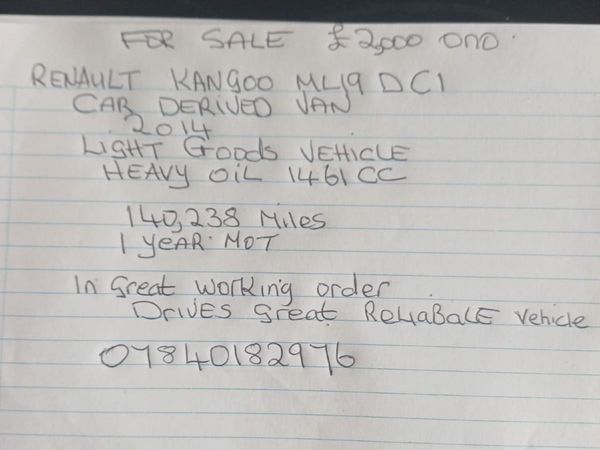 FOR SALE £2,000 ono.
RENAULT KANGOO ML19 DCI
CAR DERIVED VAN
2014
LIGHT GOODS VEHICLE
HEAVY OIL 1461CC
140,238 Miles
1 YEAR MOT
In great working order
Drives great RELiABaLE vehicle
07840182976